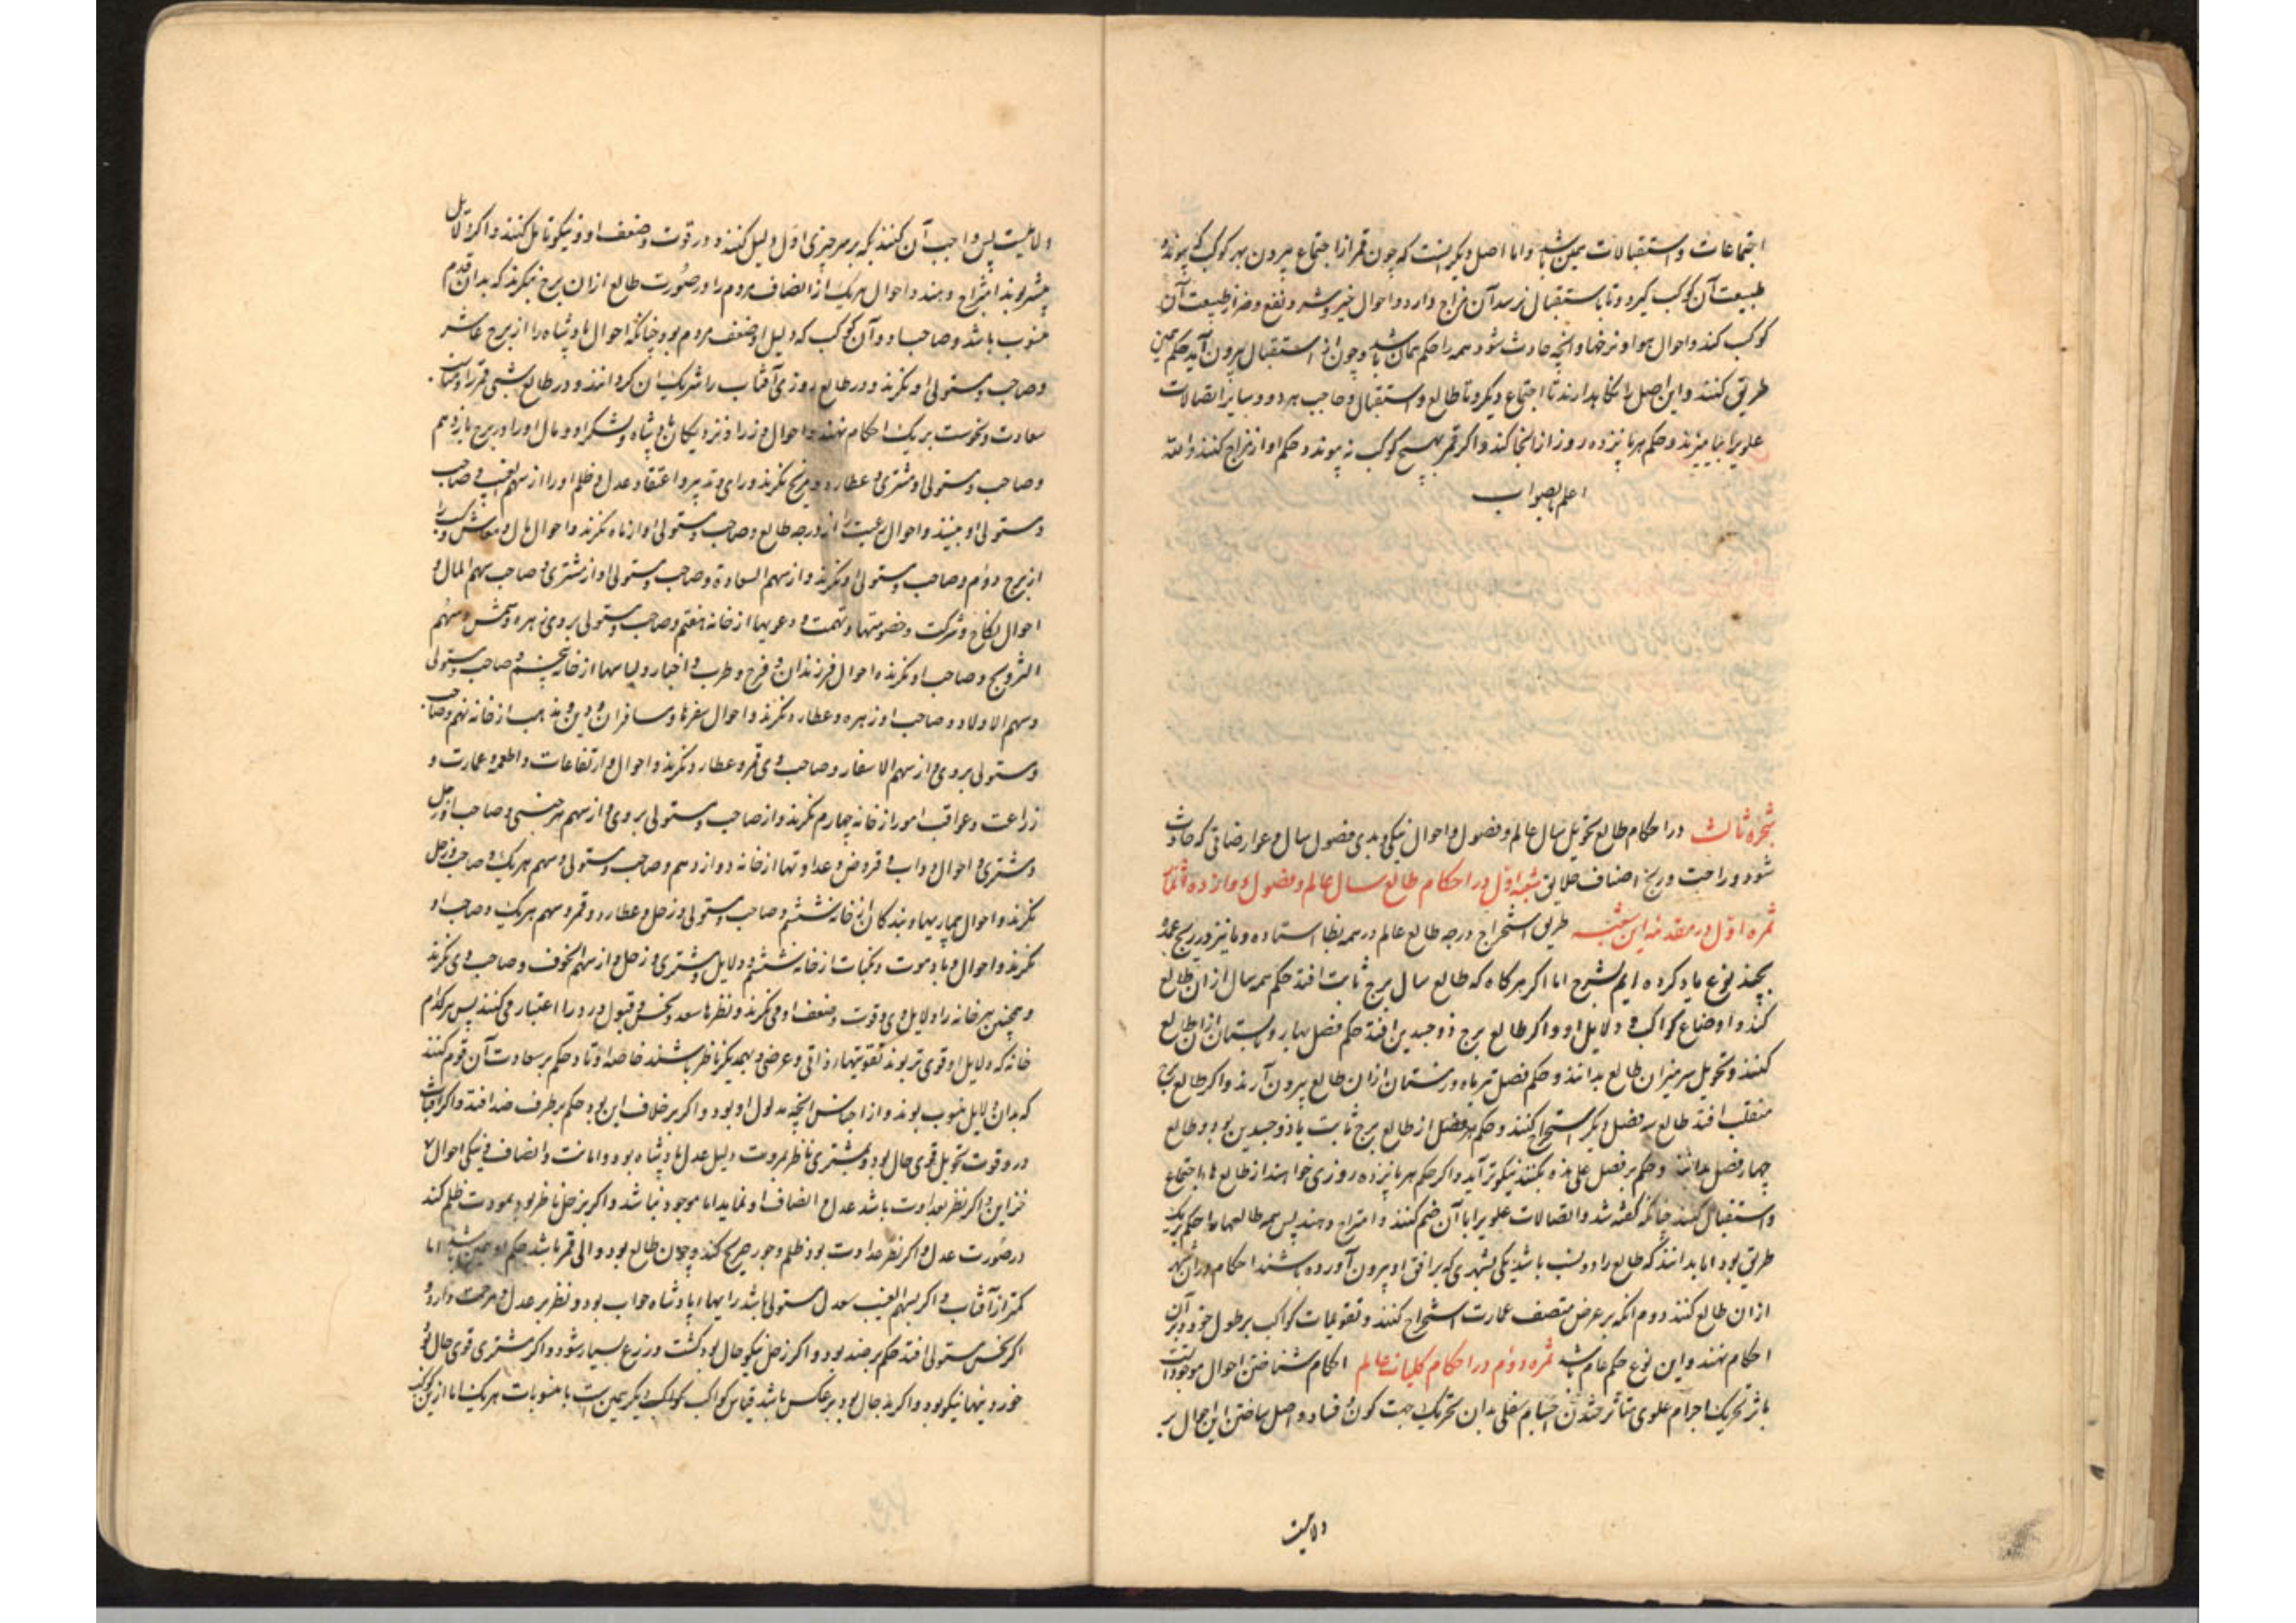 اجتماعات و استقبالات همین باشد و اما اصل دیگر انست که چون قمر از اجتماع بیرون بهر کوکب که پیوندد
طبیعت آن کوکب گیرد و تا باستقبال نرسد آن مزاج دارد و احوال خیر و شر و نفع و ضر از طبیعت آن
کوکب کند و احوال هوا و نرخها و انچه حادث شود همه را حکم همان باشد و چون از استقبال بیرون آید حکم همین
طریق کنند و این اصل را نگاهدارند تا اجتماع دیگر و تا طالع و استقبال و صاحب هر دو و سایر اتصالات
علویرا بیامیزند و حکم هر پانزده روز از انجا کند و اگر قمر بهیچ کوکب نه پیوندد حکم او از مزاج کنند و الله
اعلم بالصواب
شجره ثالث در احکام طالع تحویل سال عالم و فصول و احوال نیکی و بدی فصول سال و عوارضاتی که حادث
شود و راحت و رنج اصناف خلایق شعبه اول در احکام طالع سال عالم و فصول دوازده
ثمره اول در مقدمه این شعبه طریق استخراج درجه طالع عالم در همه و ما نیز در زیج
بچند نوع یاد کرده ایم بشرح اما اگر هرگاه که طالع سال برج ثابت افتد حکم همه سال از ان طالع
کند و اوضاع کواکب و دلایل او و اگر طالع برج ذو جسدین افتد حکم فصل بهار و تابستان از ان طالع
کنند و تحویل سر میزان طالع بدانند و حکم فصل تیرماه و زمستان از ان طالع بیرون آرند و اگر طالع برج
منقلب افتد طالع هر فصل دیگر استخراج کنند و حکم هر فصل از طالع برج ثابت یا ذو جسدین بود و طالع
چهار فصل بدانند و حکم هر فصل علی حده بکنند نیکوتر آید و اگر حکم هر پانزده روزی خواهند از طالع اجتماع
و استقبال کنند چنانکه گفته شد و اتصالات علویرا با آن ضم کنند و امتزاج دهند پس همه طالعها را حکم بر یک
طریق بود اما بدانند که طالع را دو نسب باشد یکی بشهری که بر افق او بیرون آورده باشند احکام در آن شهر
از ان طالع کنند دوم انکه بر عرض منتصف عمارت استخراج کنند و تقویمات کواکب بر طول خود و بر آن
احکام نهند و این نوع حکم عام باشد ثمره دوم در احکام کلیات عالم احکام شناختن احوال موجودات
باثر تحریک اجرام علوی متاثر شدن اجسام سفلی بدان تحریک جهت کون و فساد و اصل ساختن این اجمال بر
ولایت
ولایت پس واجب آن کنند که بر هر چیزی اول دلیل کنند و در قوت و ضعف او و نیکو تامل کنند و اگر دلایل
بیشتر بوند امتزاج دهند و احوال هریک از اصناف مردم را در صورت طالع از ان برج بنگرند که بدان قوم
منسوب باشد و صاحب او و آن کوکب که دلیل او ضعف مردم بود چنانکه احوال پادشاه را از برج عاشر
و صاحب و مستولی او نگرند و در طالع روزی آفتاب را شریک ان گردانند و در طالع شبی قمر را و
سعادت و نحوست بر یک احکام نهند و احوال وزرا و نزدیکان پادشاه و لشکر او و مال او را در برج یازدهم
و صاحب و مستولی او مشتری و عطارد و مریخ نگرند و رای و تدبیر و اعتقاد و عدل و ظلم او را از سهم الغیب و صاحب
و مستولی او بینند و احوال رعیت را از درجه طالع و صاحب و مستولی او از ماه نگرند و احوال مال و معاش و کسب را
از برج دوم و صاحب و مستولی او نگرند و از سهم السعادة و صاحب و مستولی او از مشتری و صاحب سهم المال و
احوال نکاح و شرکت و خصومتها و تهمت و دعویها از خانه هفتم و صاحب و مستولی بر وی و زهره و شمس و سهم
التزویج و صاحب او نگرند و احوال فرزندان و فرح و طرب و اخبار و لباسها از خانه پنجم و صاحب و مستولی
و سهم الاولاد و صاحب او زهره و عطارد نگرند و احوال سفرها و مسافران و دین و مذهب از خانه نهم و صاحب
و مستولی بر وی و از سهم الاسفار و صاحب وی قمر و عطارد نگرند و احوال و ارتفاعات و اطعمه و عمارت و
زراعت و عواقب امور از خانه چهارم نگرند و از صاحب و مستولی بر وی و از سهم هر جنسی و صاحب او زحل
و مشتری و احوال دواب و قروض و عداوتها از خانه دوازدهم و صاحب و مستولی و سهم هریک و صاحب و زحل
نگرند و احوال بیماریها و بندگان از خانه ششم و صاحب و مستولی و زحل و عطارد و قمر و سهم هریک و صاحب او
نگرند و احوال وبا و موت و نکبات از خانه ششم و دلایل مشتری و زحل و از سهم الخوف و صاحب وی نگرند
و همچنین هر خانه را دلایل وی و قوت و ضعف او می نگرند و نظرها سعد و نحس و قبول و رد را اعتبار می کنند پس هر کدام
خانه که دلایل او قوی تر بوند بقویتهاء ذاتی و عرضی و بهمدیگر ناظر باشند خاصه اوتاد حکم بر سعادت آن قوم کنند
که بدان دلایل منسوب بوند و از اجناس انچه مدلول او بود و اگر بر خلاف این بود حکم بر طرف ضد افتد و اگر آفتاب
در وقت تحویل قوی حال بود و مشتری ناظر بمودت دلیل عدل پادشاه بود و امانت و انصاف و نیکی احوال
این و اگر نظر بعداوت باشد عدل و انصاف او نماید اما موجود نباشد و اگر نیز زحل ناظر بود بمودت ظلم کند
در صورت عدل و اگر نظر عداوت بود ظلم و جور صریح کند و چون طالع بود والی قمر باشد حکم او همین باشد اما
کمتر از آفتاب و اگر بسهم الغیب سعدی مستولی باشد رایهاء پادشاه صواب بود و نظر بر عدل و مرحمت دارد و
اگر نحس مستولی افتد حکم بر ضد بود و اگر زحل نیکو حال بود کشت و زرع بسیار شود و اگر مشتری قوی حال بود
خوردنیها نیکو بود و اگر بد حال بود بر عکس باشد قیاس کواکب کواکب دیگر همین است با منسوبات هریک اما ازین کواکب